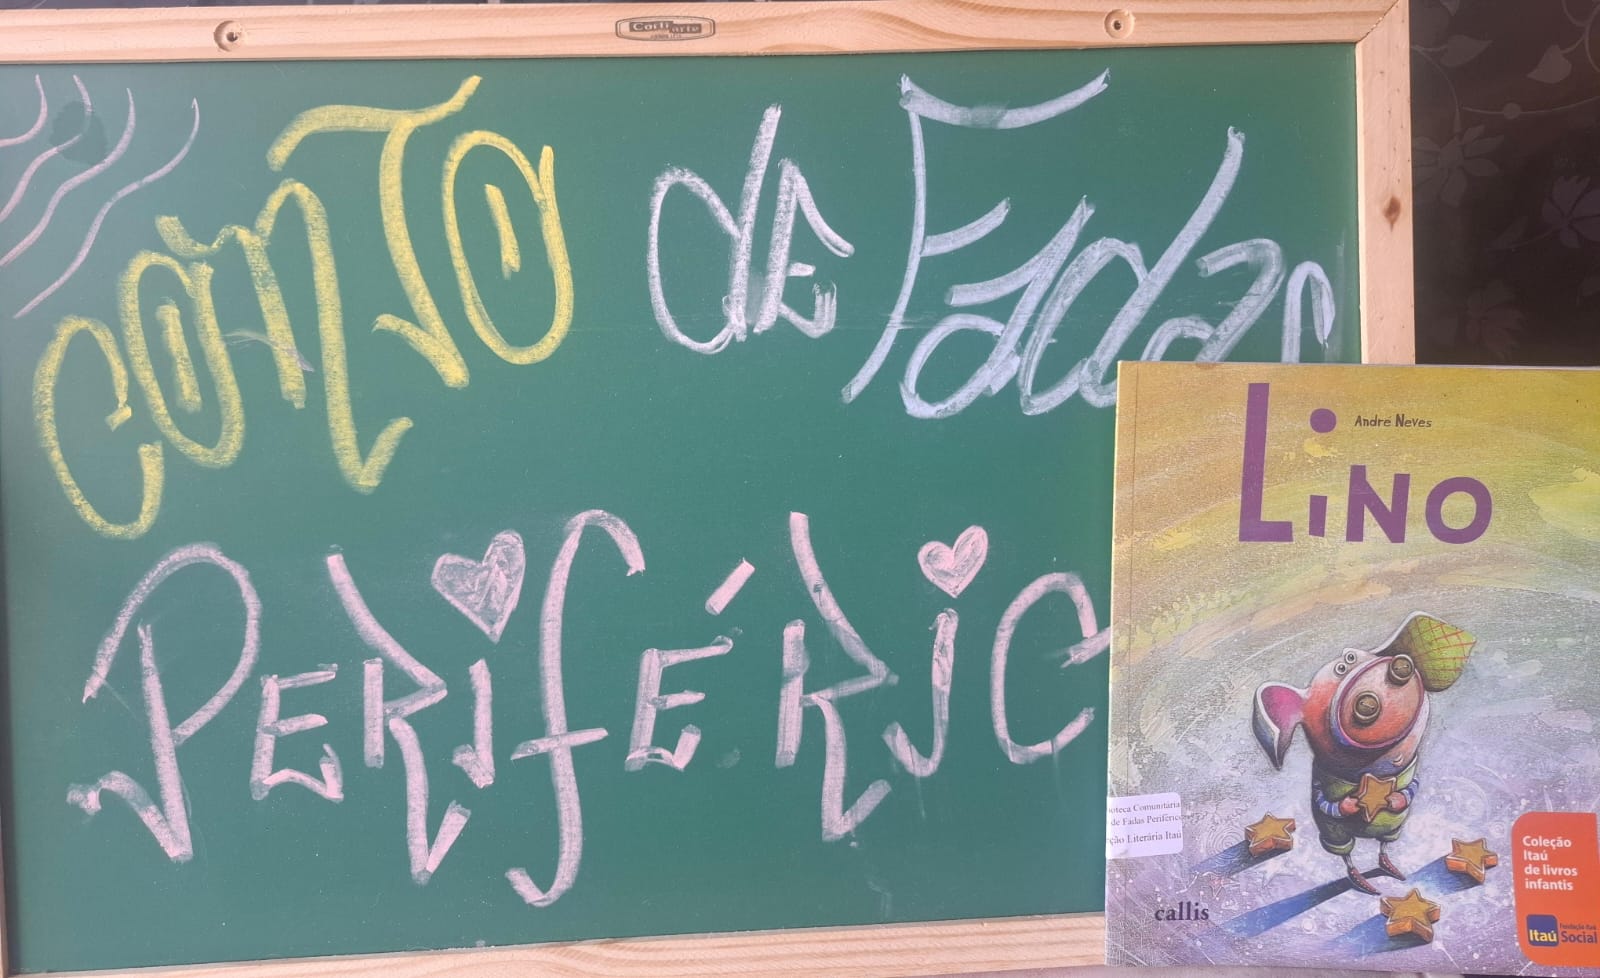 Corti arte
CONTO de Fadas
PERIFÉRIC
André Neves
LINO
oteca Comunitária
de Fadas Periférico
ção Literária Itaú
callis
Coleção
Itaú
de livros
infantis
Itaú
Fundação Itaú
Social